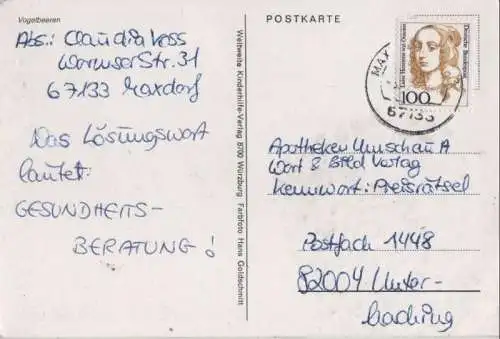 Vogelbeeren
Abs.: Claudia Voss
Wormser Str. 31
67133 Maxdorf
Das Lösungswort
lautet:
GESUNDHEITS-
BERATUNG!
Weltweite Kinderhilfe-Verlag 8700 Würzburg Farbfoto Hans Goldschmitt
POSTKARTE
MAX
67133
Deutsche Bundespost
100
Apotheken Umschau A
Wort & Bild Verlag
Kennwort: Preisrätsel
Postfach 1448
82004 Unter-
haching